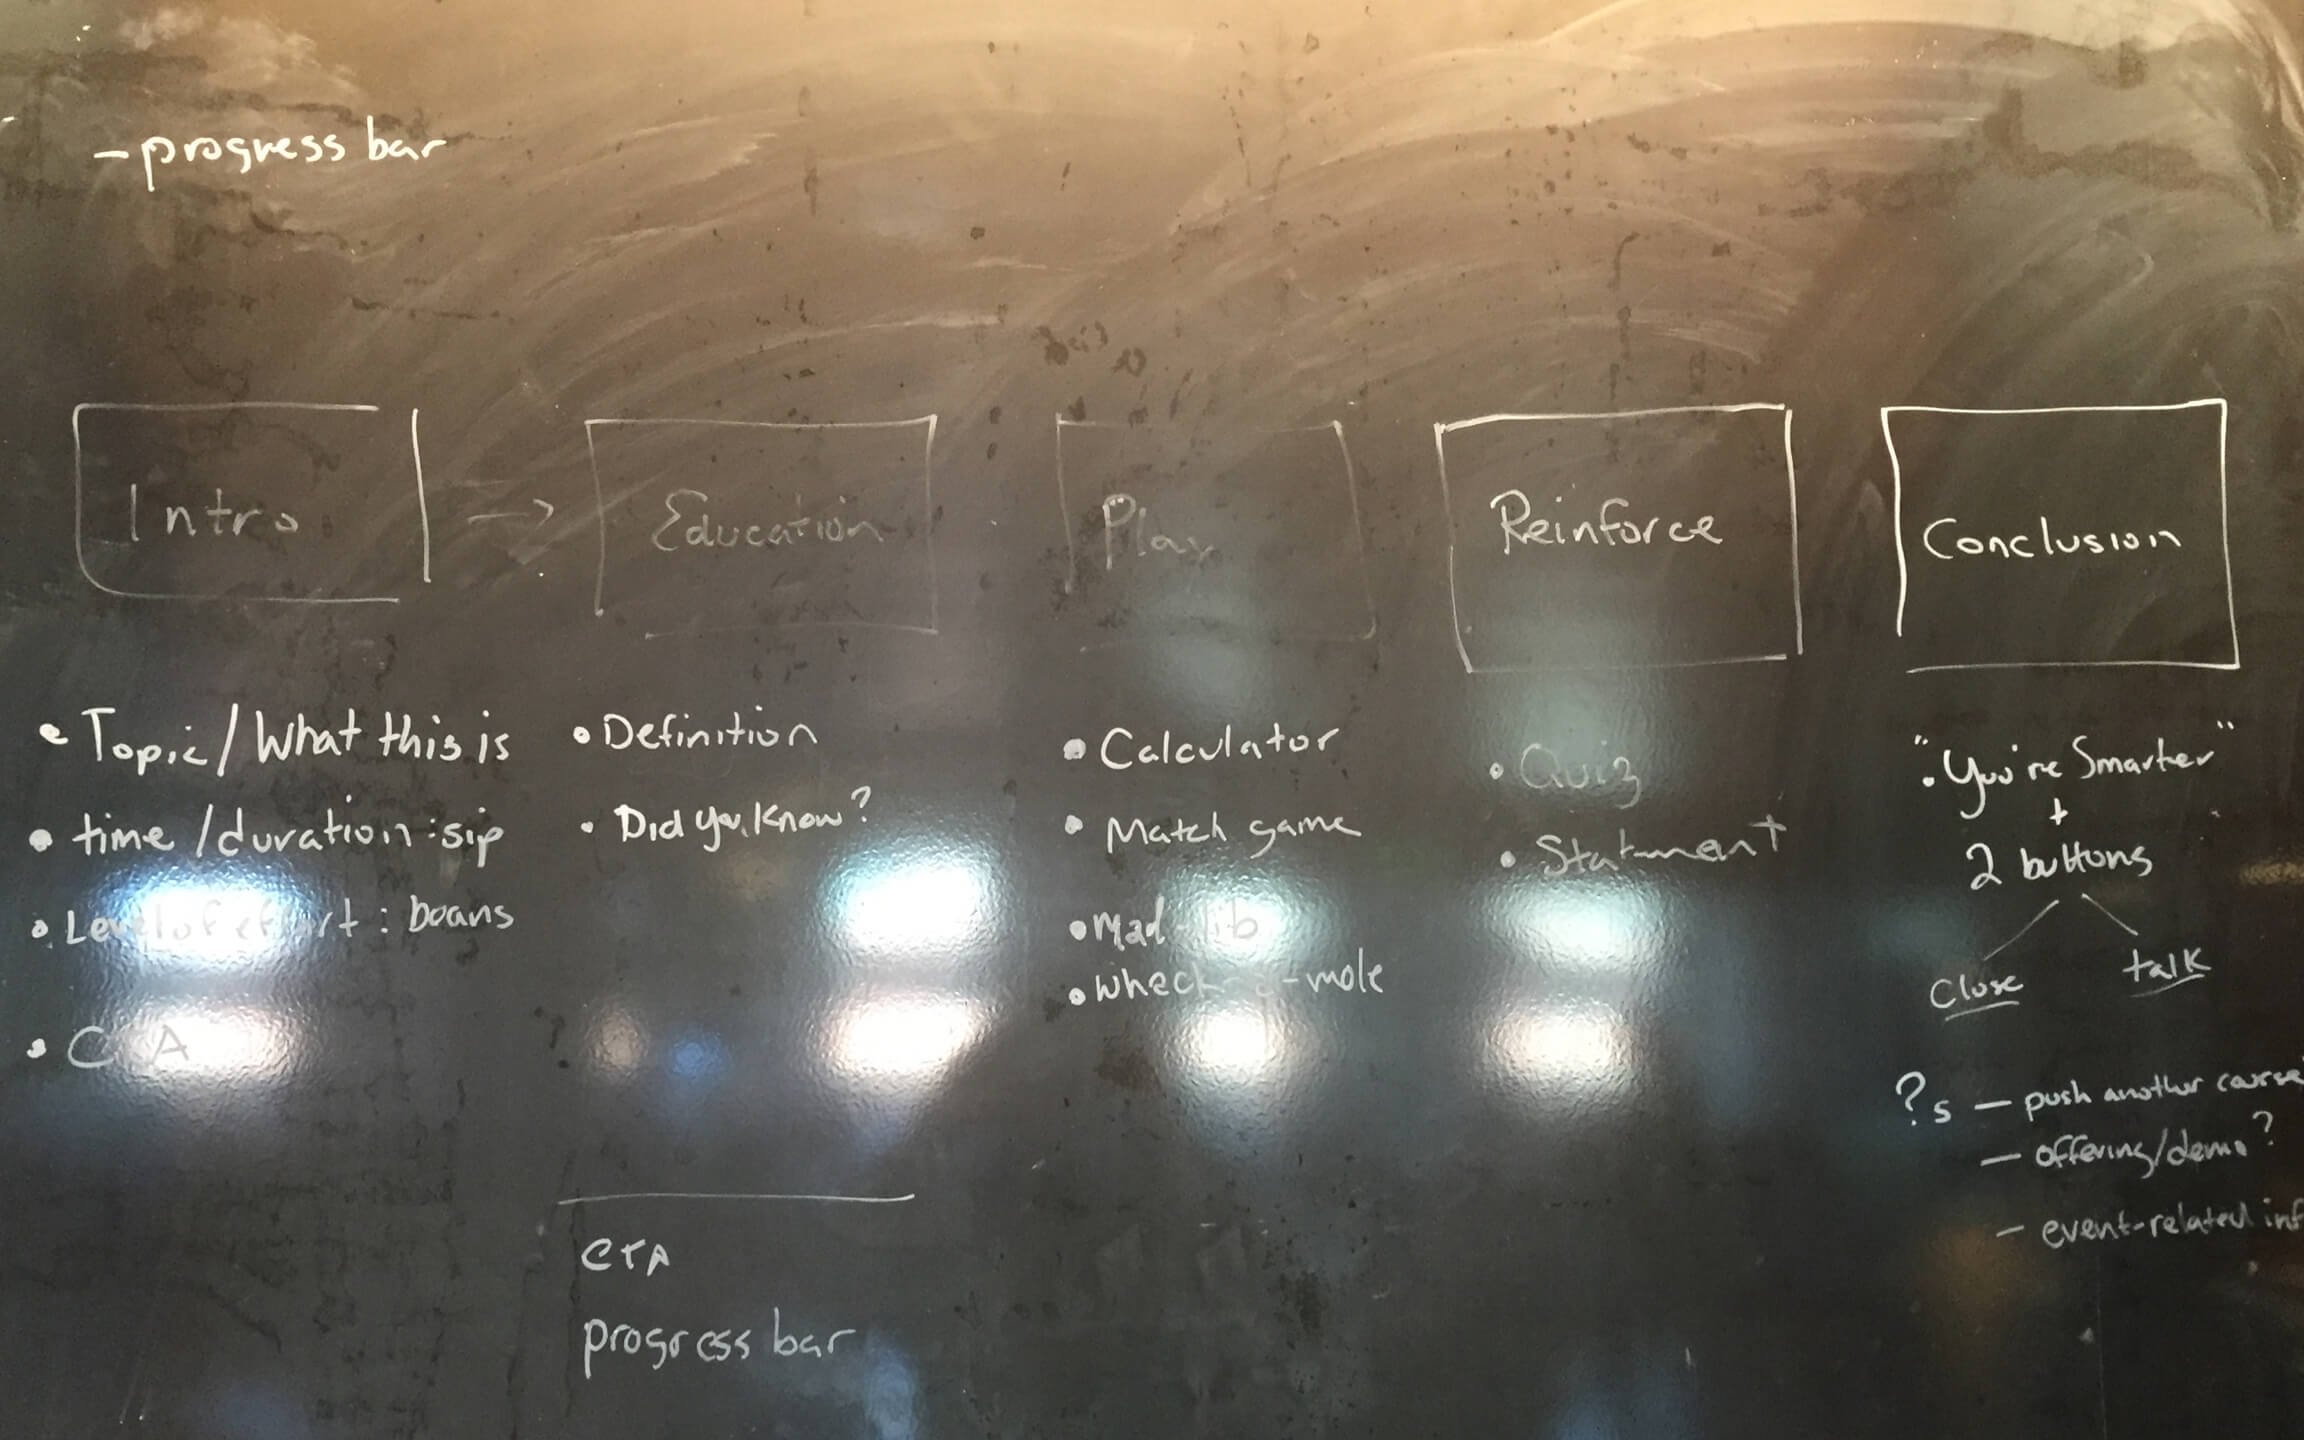 - progress bar
Intro → Education Play Reinforce Conclusion
• Topic / What this is
• time / duration : sip
• Level of effort : beans
• CTA
• Definition
• Did you know?
CTA
progress bar
• Calculator
• Match game
• Mad-lib
• Whack-a-mole
• Quiz
• Statment
• "You're Smarter"
+
2 buttons
Close talk
?s — push another course
— offering/demo?
— event-related inf